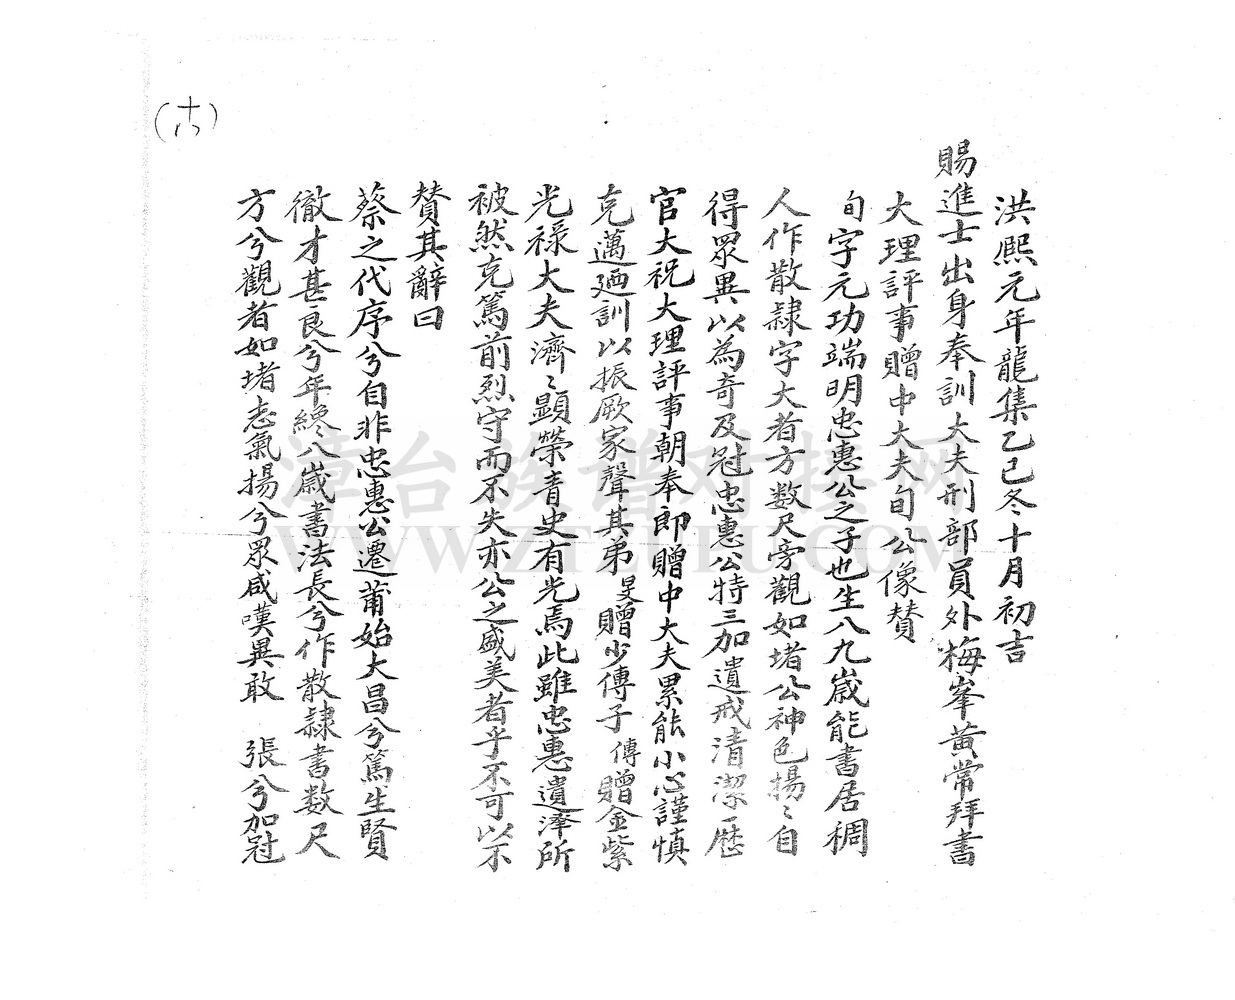 洪熙元年龍集乙巳冬十月初吉
賜進士出身奉訓大夫刑部員外梅峯黃常拜書
大理評事贈中大夫旬公像贊
旬字元功端明忠惠公之子也生八九歲能書居稠
人作散隷字大者方数尺旁觀如堵公神色揚〻自
得眾異以為奇及冠忠惠公特三加遺戒清潔歷
官大祝大理評事朝奉郎贈中大夫累能小心謹慎
克邁廼訓以振厥家聲其弟旻贈少傳子傳贈金紫
光祿大夫濟〻顯榮青史有光焉此雖忠惠遺澤所
被然克篤前烈守而不失亦公之盛美者乎不可以不
贊其辭曰
蔡之代序兮自非忠惠公遷莆始大昌兮篤生賢
徹才甚良兮年纔八歲書法長兮作散隷書数尺
方兮觀者如堵志氣揚兮眾咸嘆異敢 張兮加冠
(十八)
漳台族谱对接网
WWW.ZTZUPU.COM